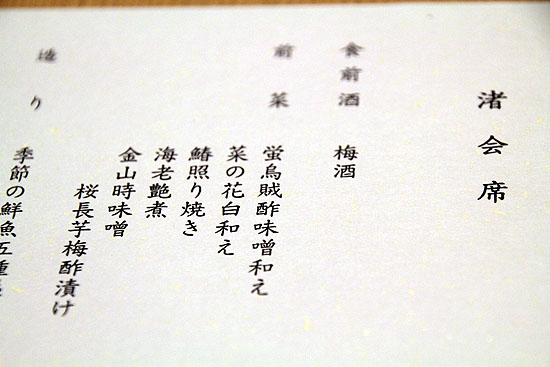 渚会席
食前酒 梅酒
前菜 蛍烏賊酢味噌和え
菜の花白和え
鰆照り焼き
海老艶煮
金山時味噌
桜長芋梅酢漬け
造り 季節の鮮魚五種